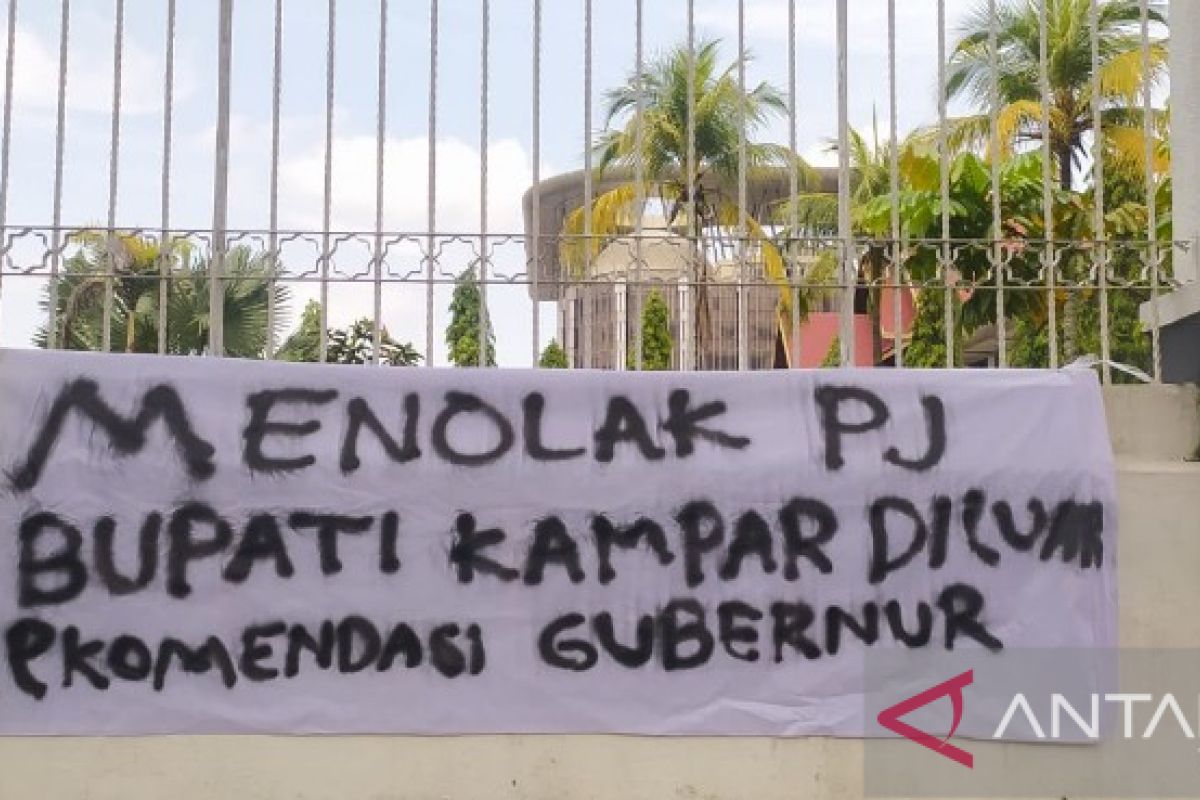 MENOLAK PJ
BUPATI KAMPAR
RKOMENDASI GUBERNUR
ANTA